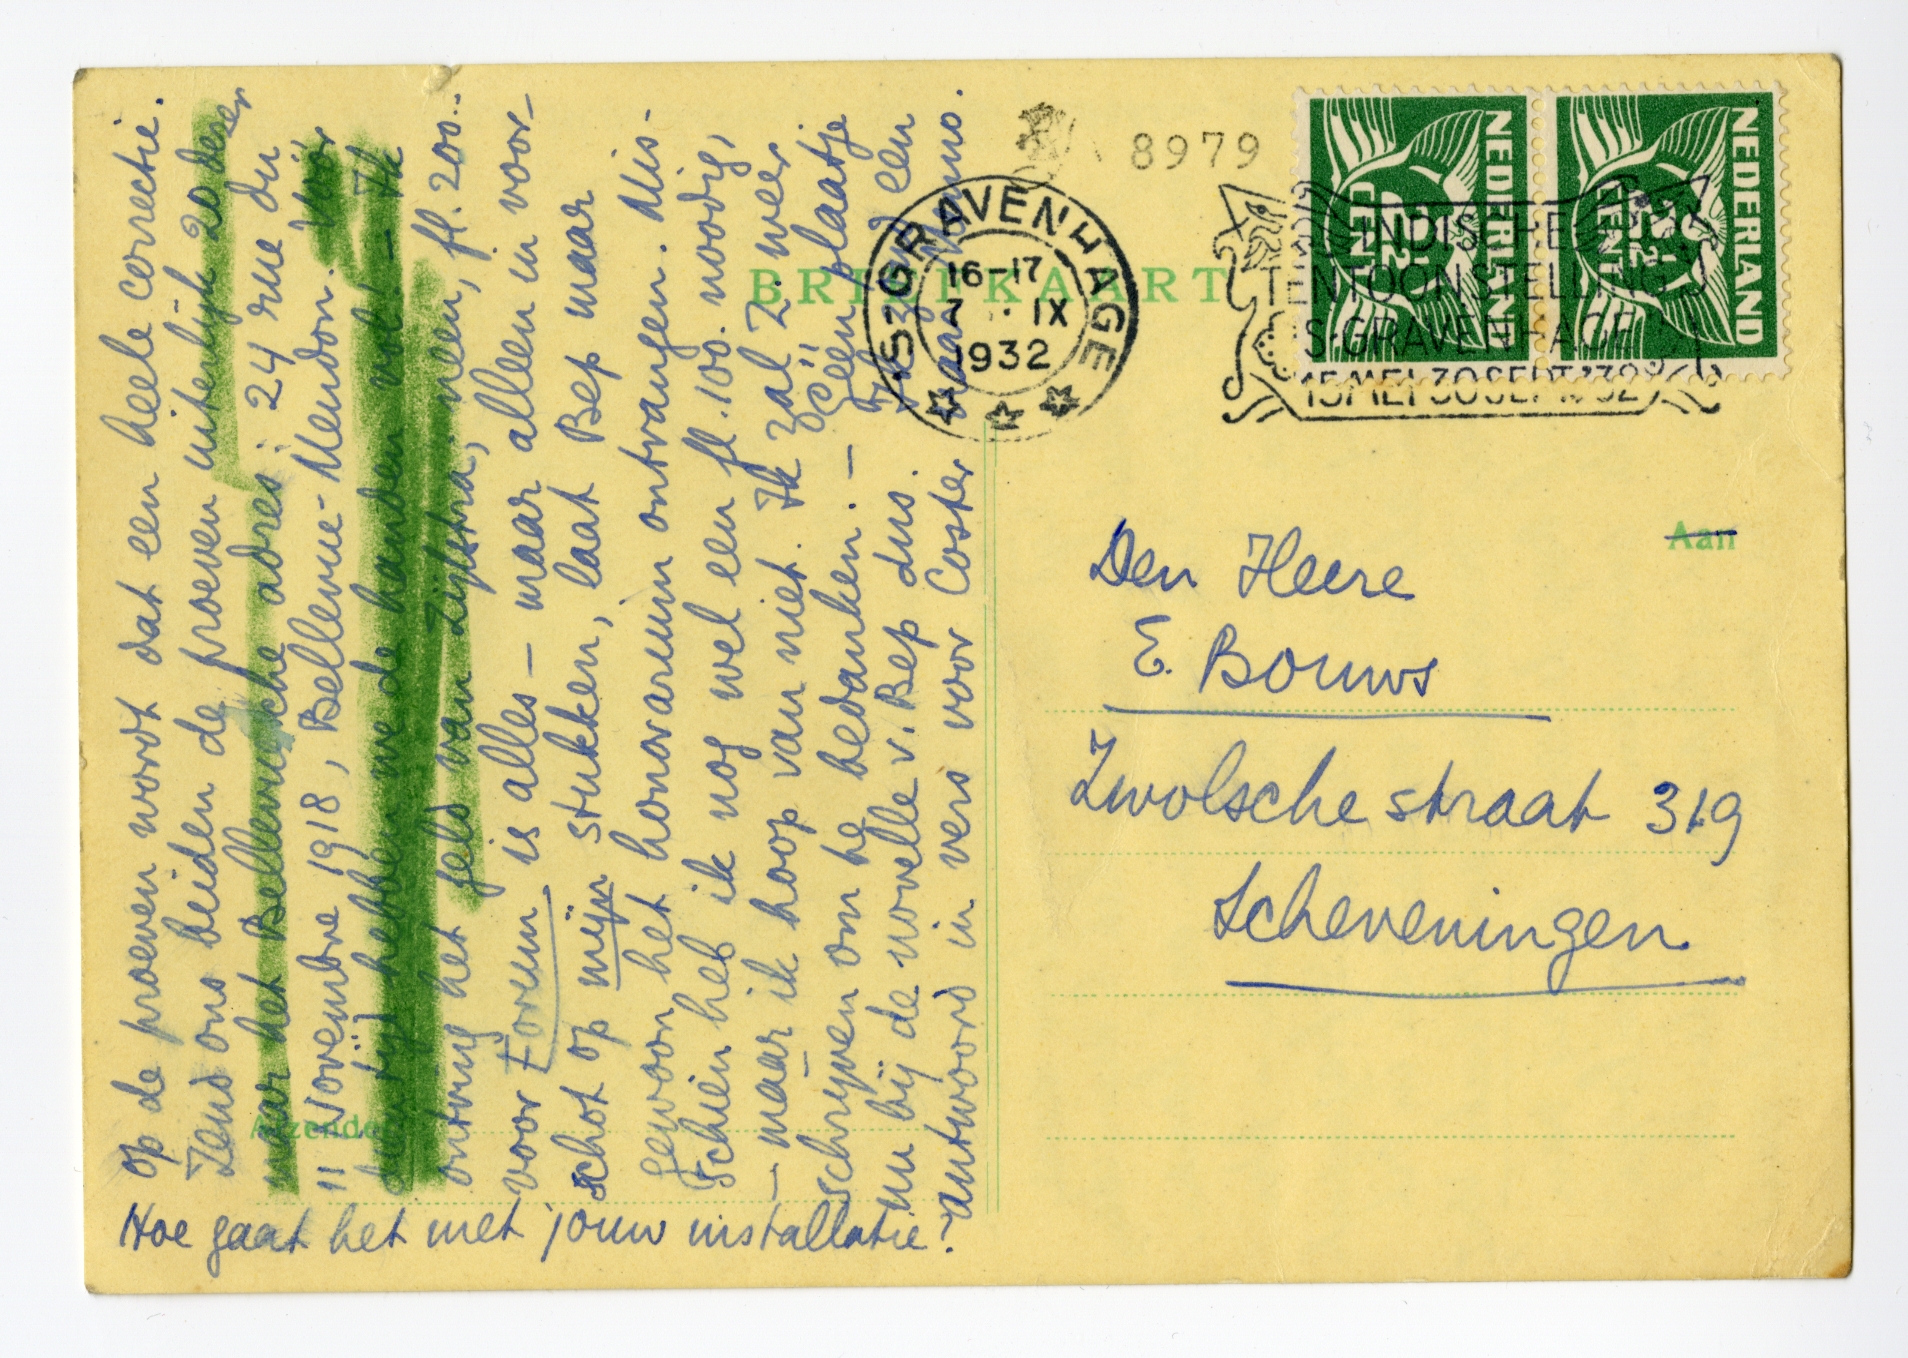 op de proeven wordt dat een heele correctie.
Zend ons beiden de proeven uiterlijk 20 dezer
naar het Bellevuesche adres: 24 rue du
11 Novembre 1918, Bellevue-Meudon. Vóór
dien tijd hebben we de handen vol. — Ik
ontving het geld van Zijlstra, neen, fl. 200.-
voor Forum is alles — maar alleen in voor-
schot op mijn stukken, laat Bep maar
gewoon het honorarium ontvangen. Mis-
schien heb ik nog wel een fl. 100. noodig,
— maar ik hoop van niet. Ik zal Z. weer
schrijven om te bedanken. — Geen plaatje
nu bij de novelle v. Bep dus. Ik zend een
antwoord in vers voor Coster aan Menno.
Hoe gaat het met jouw installatie?
Afzender
BRIEFKAART
'S GRAVENHAGE
16-17
7 . IX
1932
8979
NEDERLAND
2 1/2
CENT
NEDERLAND
2 1/2
CENT
INDISCHE
TENTOONSTELLING
'S-GRAVENHAGE
15 MEI 30 SEPT 1932
Aan
Den Heere
E. Bouws
Zwolsche straat 319
Scheveningen